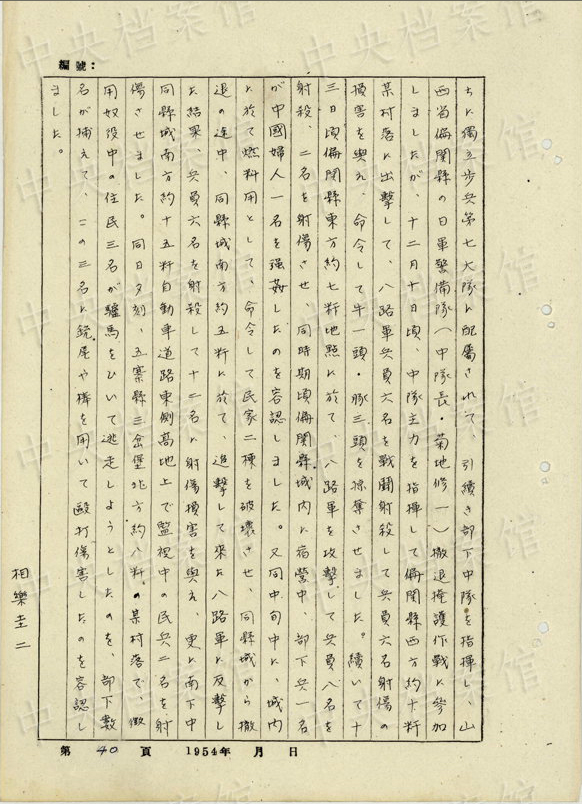 編號：
ちに獨立步兵第七大隊に配屬されて、引續き部下中隊を指揮し、山
西省偏関縣の日軍警備隊（中隊長・菊地修一）撤退掩護作戰に參加
しましたが、十二月十日頃、中隊主力を指揮して偏関縣西方約十粁
某村落に出擊して、八路軍兵員六名を戰鬪射殺して兵員六名射傷の
損害を與え、命令して牛一頭・豚三頭を掠奪させました。續いて十
三日頃偏関縣東方約七粁地點に於て、八路軍を攻擊して兵員八名を
射殺、二名を射傷させ、同時期頃偏関縣城內に宿營中、部下兵一名
が中國婦人一名を强姦したのを容認しました。又同中旬中に、城内
に於て燃料用として、命令して民家二棟を破壞させ、同縣城から撤
退の途中、同縣城南方約五粁に於て、追擊して來た八路軍に反擊し
た結果、兵員六名を射殺して十二名に射傷損害を與え、更に南下中
同縣城南方約十五粁自動車道路東側高地上で監視中の民兵二名を射
傷させました。同日夕刻、五寨縣三岔堡北方約八粁の某村落で、徴
用奴役中の住民三名が驢馬をひいて逃走しようとしたのを、部下數
名が捕えて、この三名に銃尾や棒を用いて毆打傷害したのを容認し
ました。
相樂圭二
第 40 頁 1954年 月 日
中央档案馆